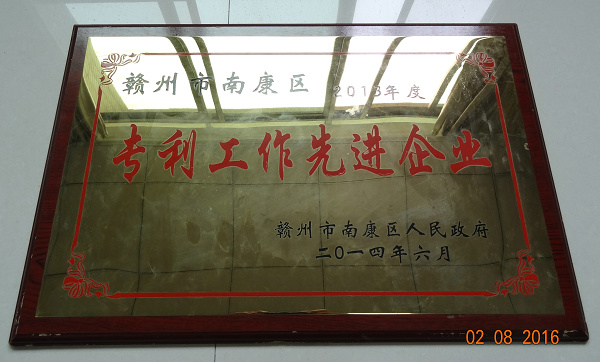 赣州市南康区 2013年度
专利工作先进企业
赣州市南康区人民政府
二〇一四年六月
02 08 2016